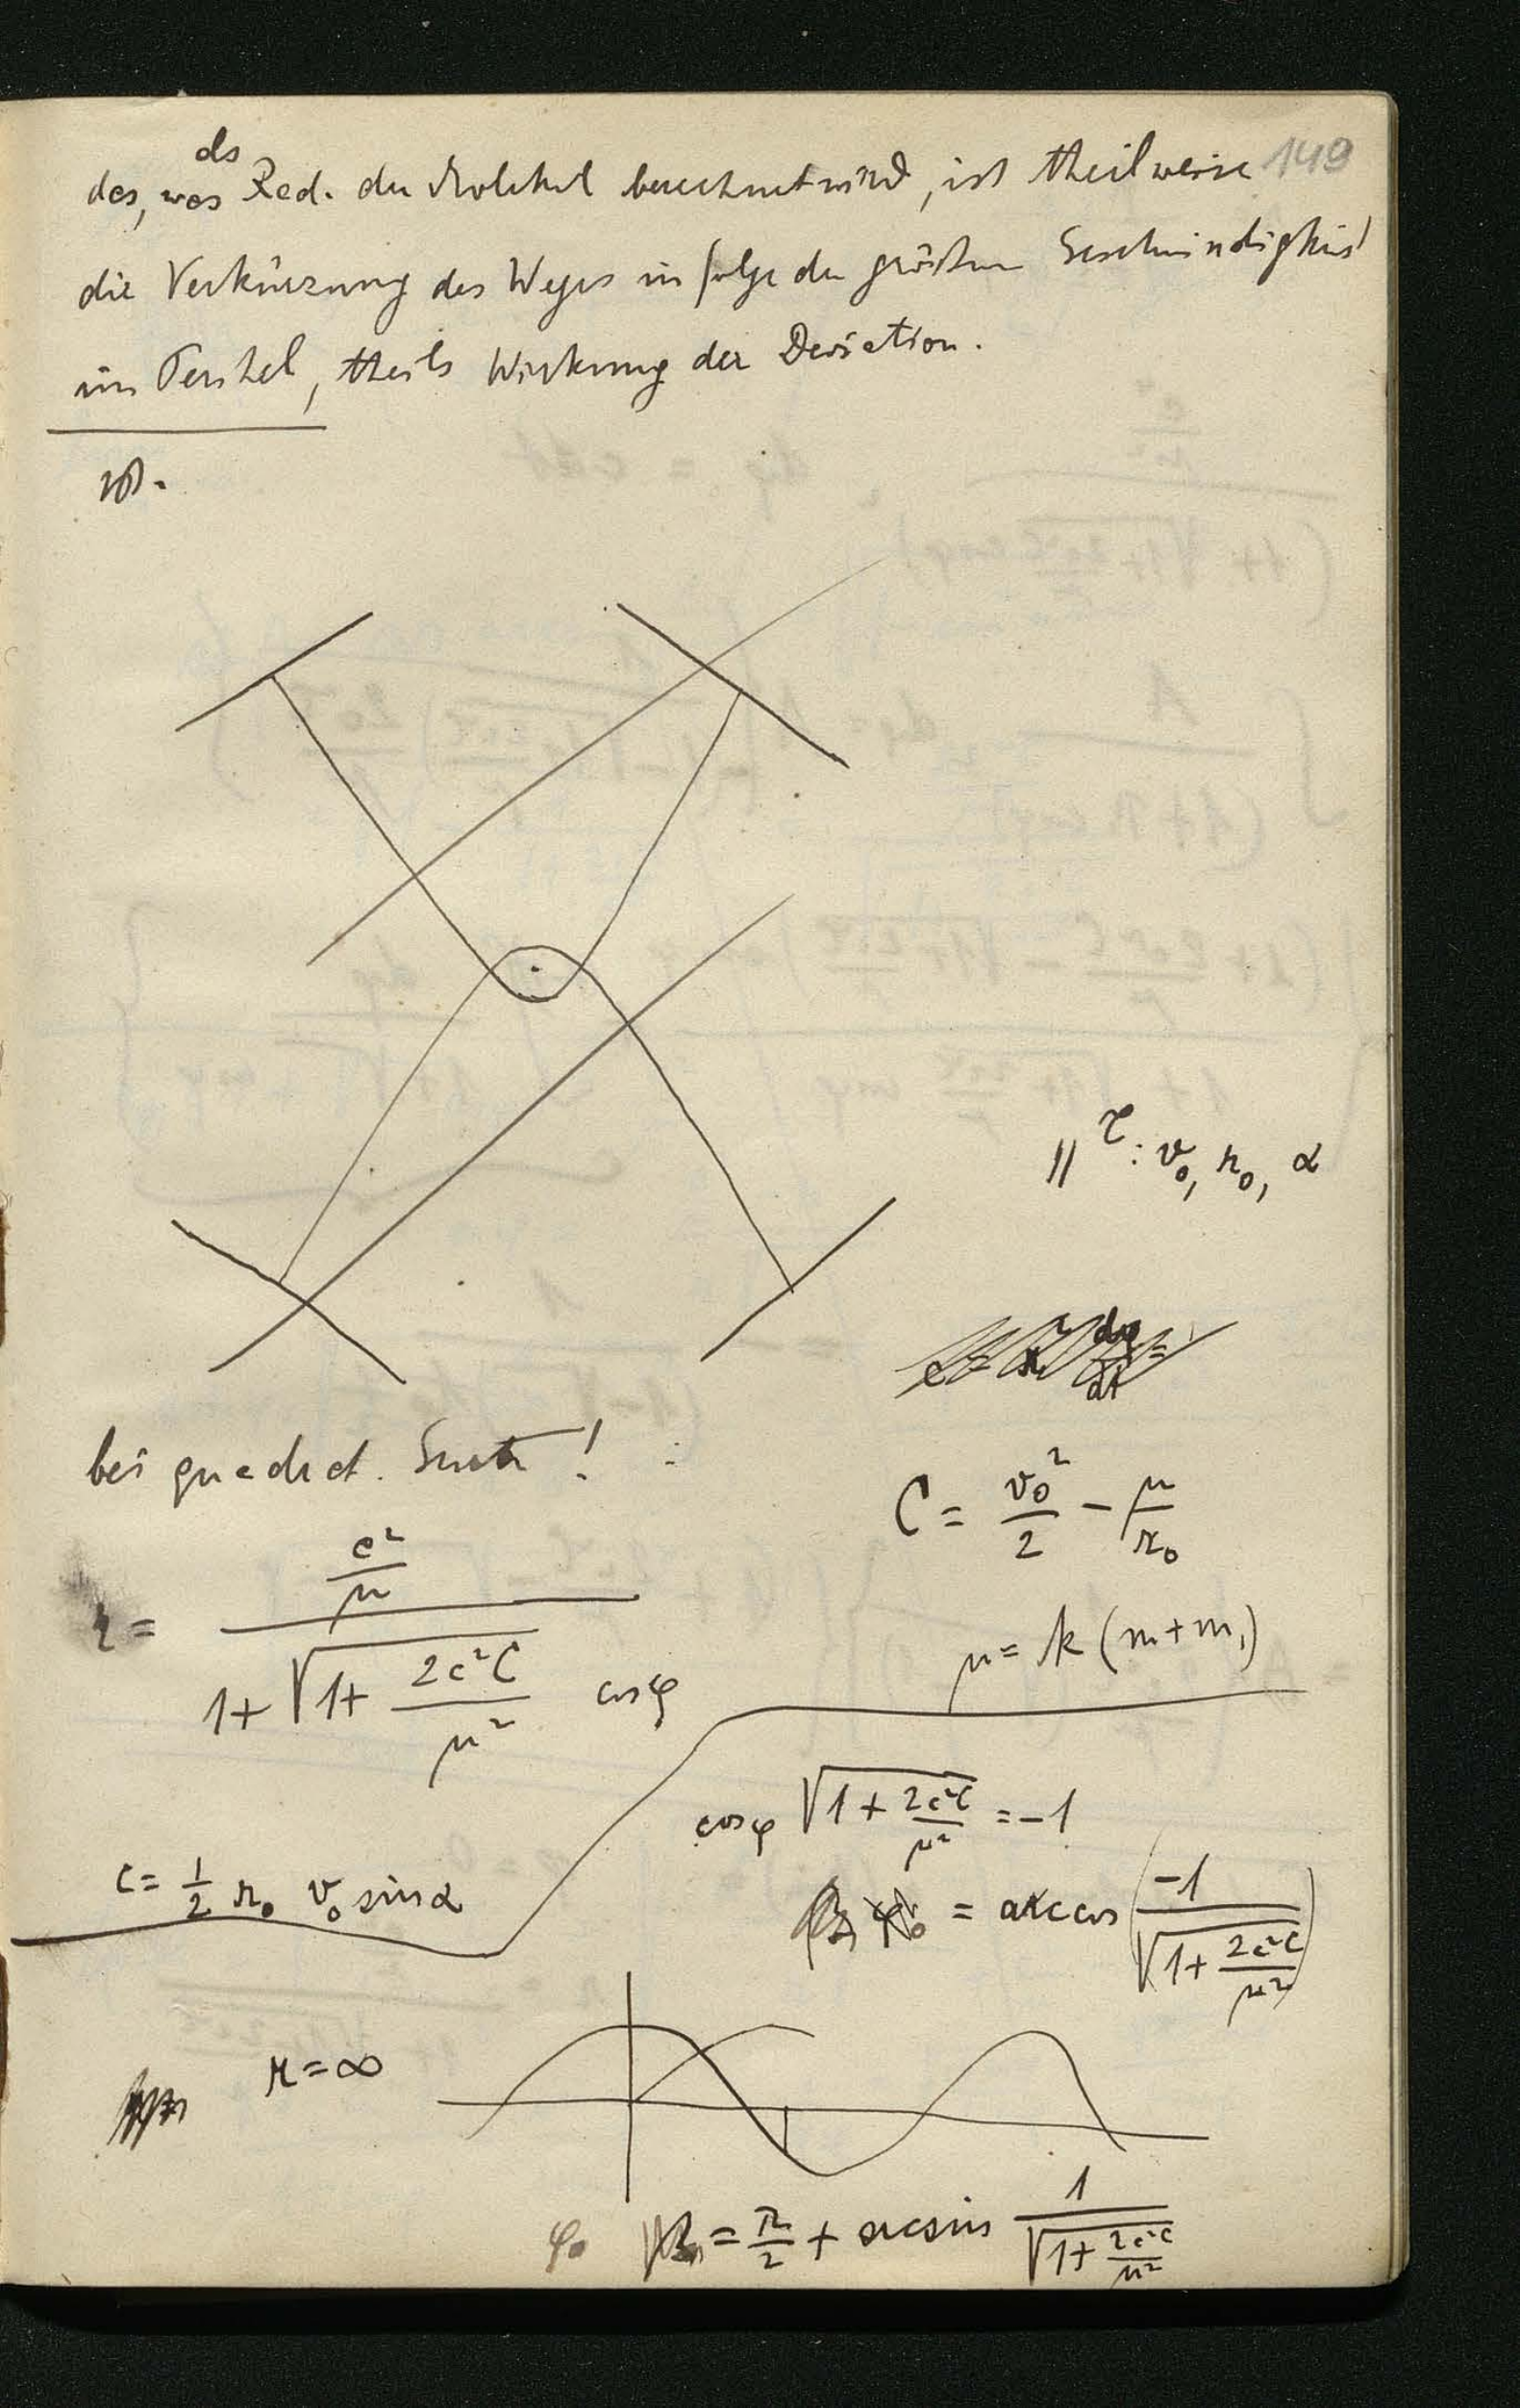 149
als
das, was Rad. der Molekel berechnet wird, ist theilweise
die Verkürzung des Weges in folge der größern Geschwindigkeit
im Perihel, theils Wirkung der Deviation.
bei quadrat. Gesetz!
τ: v₀, r₀, α
C = v₀²/2 − μ/r₀
r = (c²/μ) / (1+ √(1+ 2c²C/μ²) cosφ)
μ = k (m+m₁)
c = 1/2 r₀ v₀ sinα
cosφ √(1 + 2c²C/μ²) = −1
φ₀ = arccos (−1/√(1+ 2c²C/μ²))
r = ∞
φ₀ = π/2 + arcsin 1/√(1+ 2c²C/μ²)